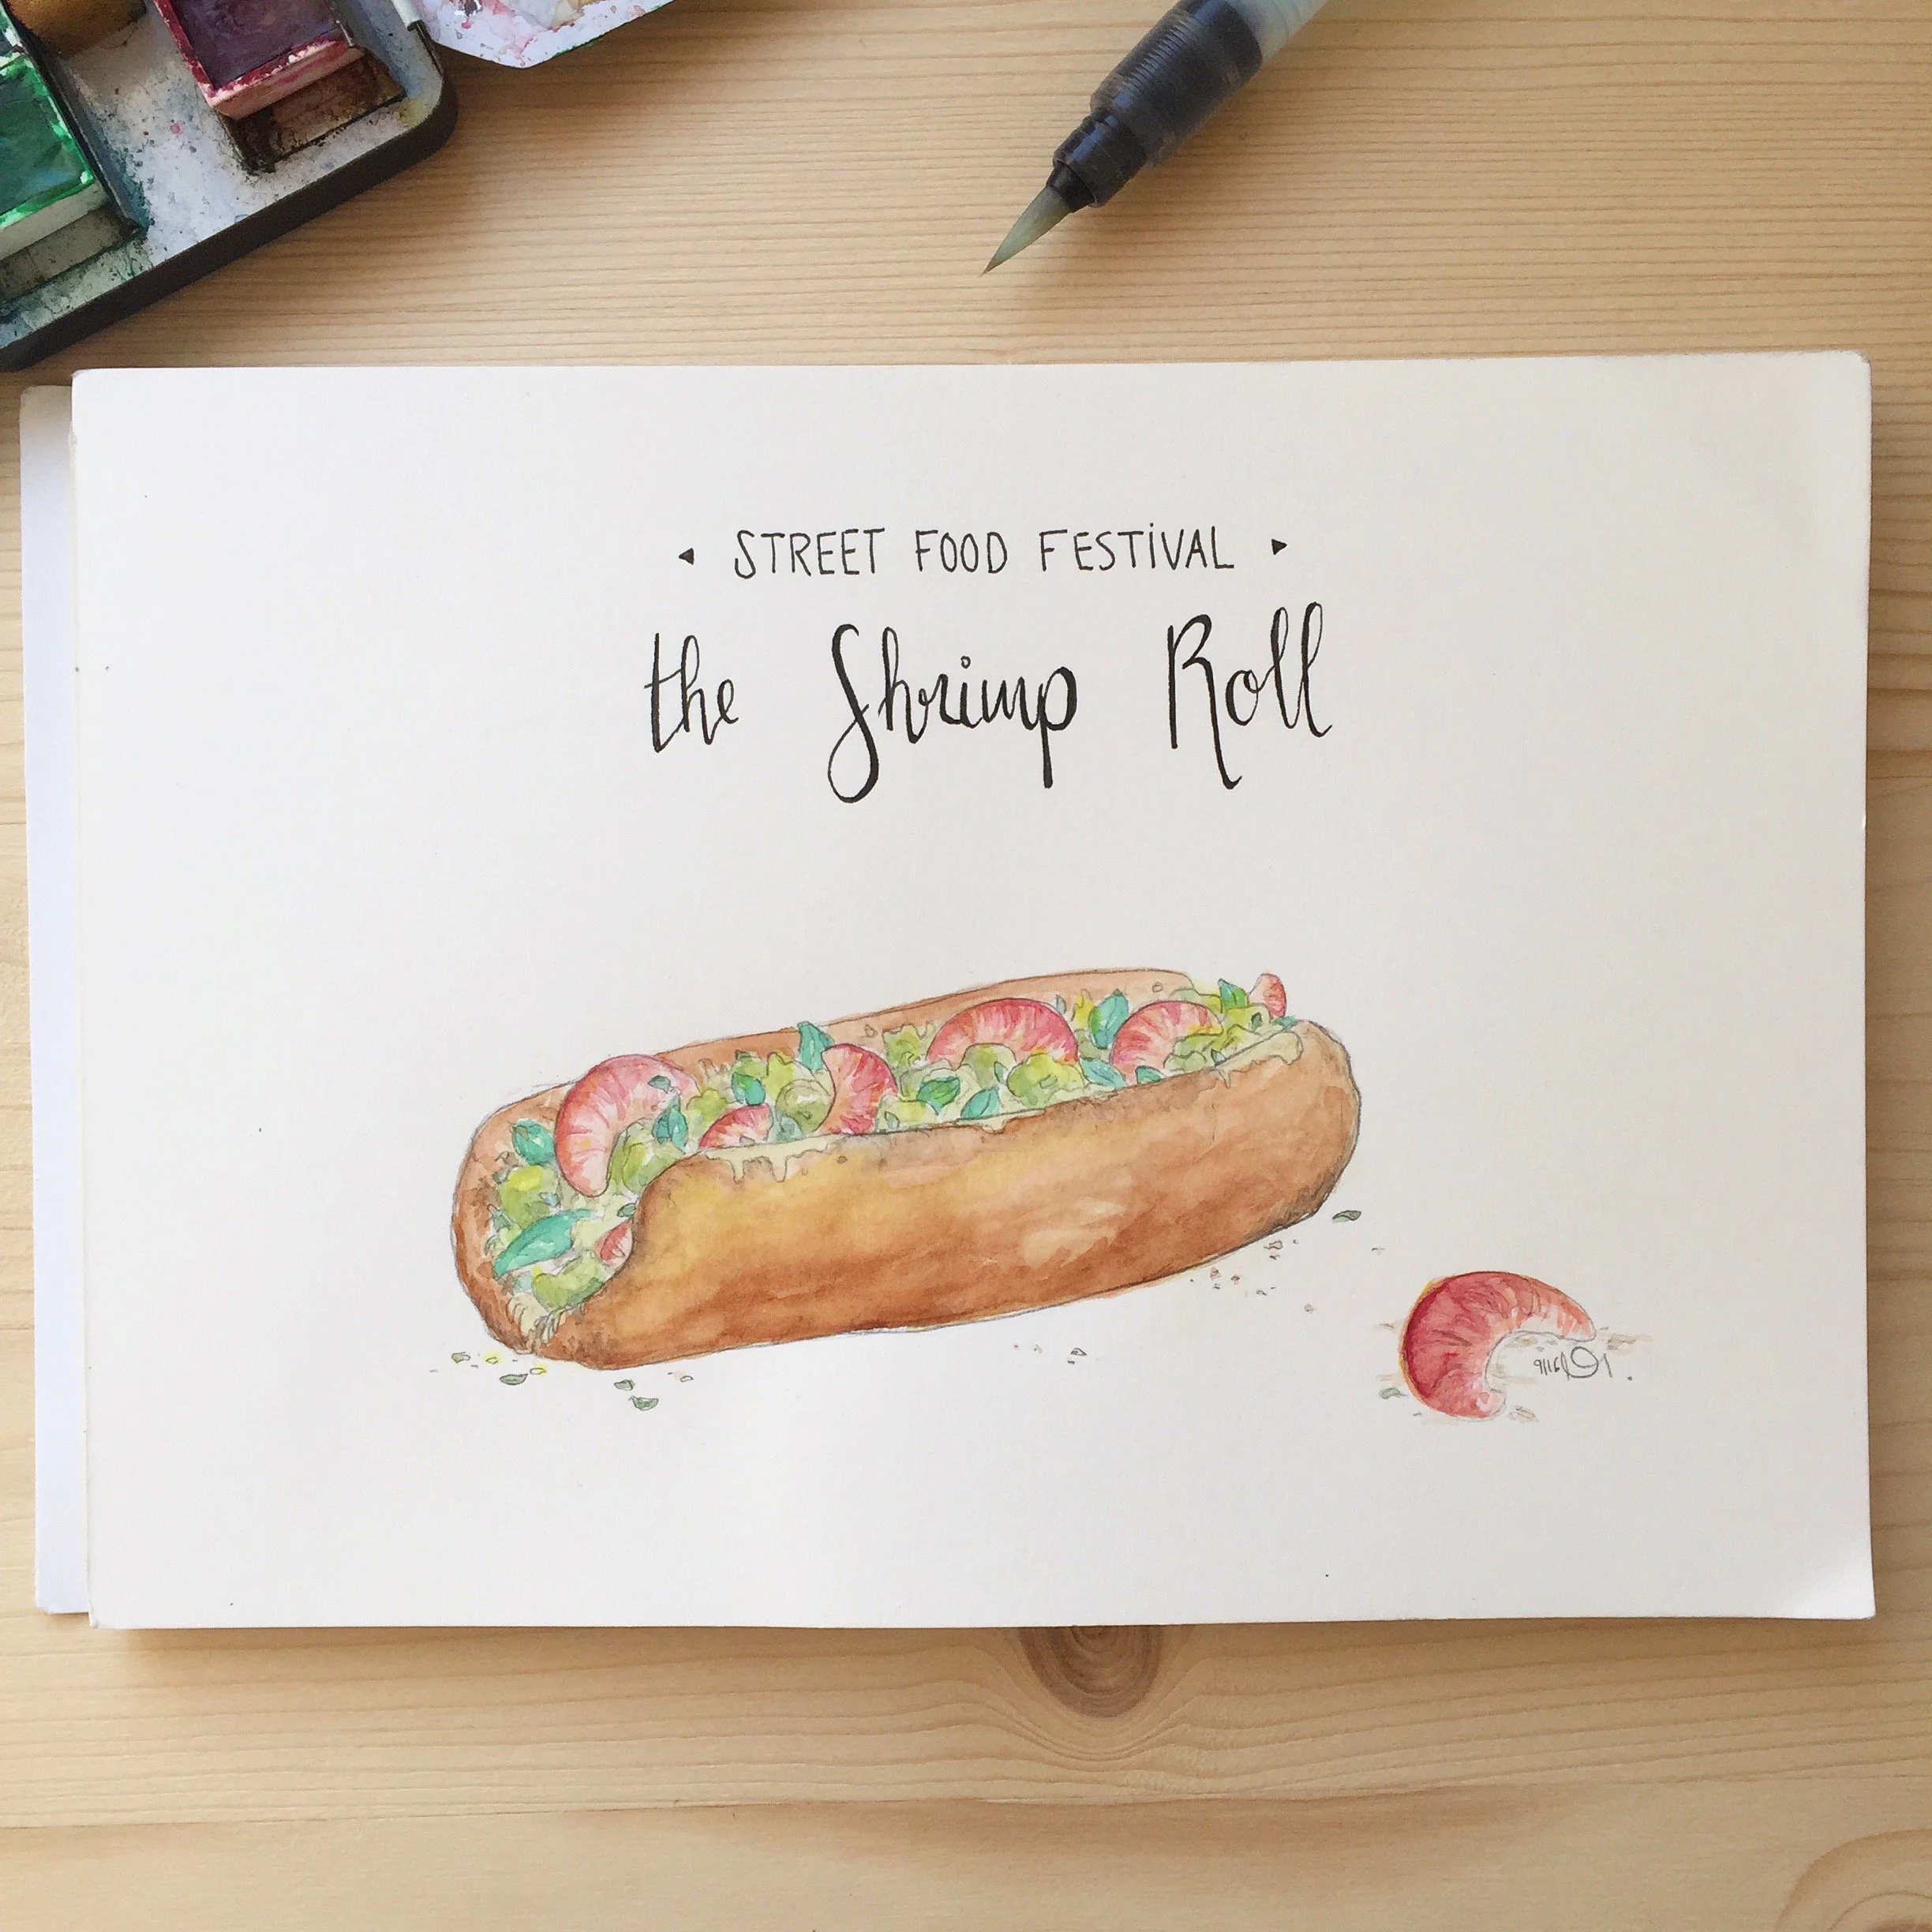 STREET FOOD FESTiVAL
the Shrimp Roll